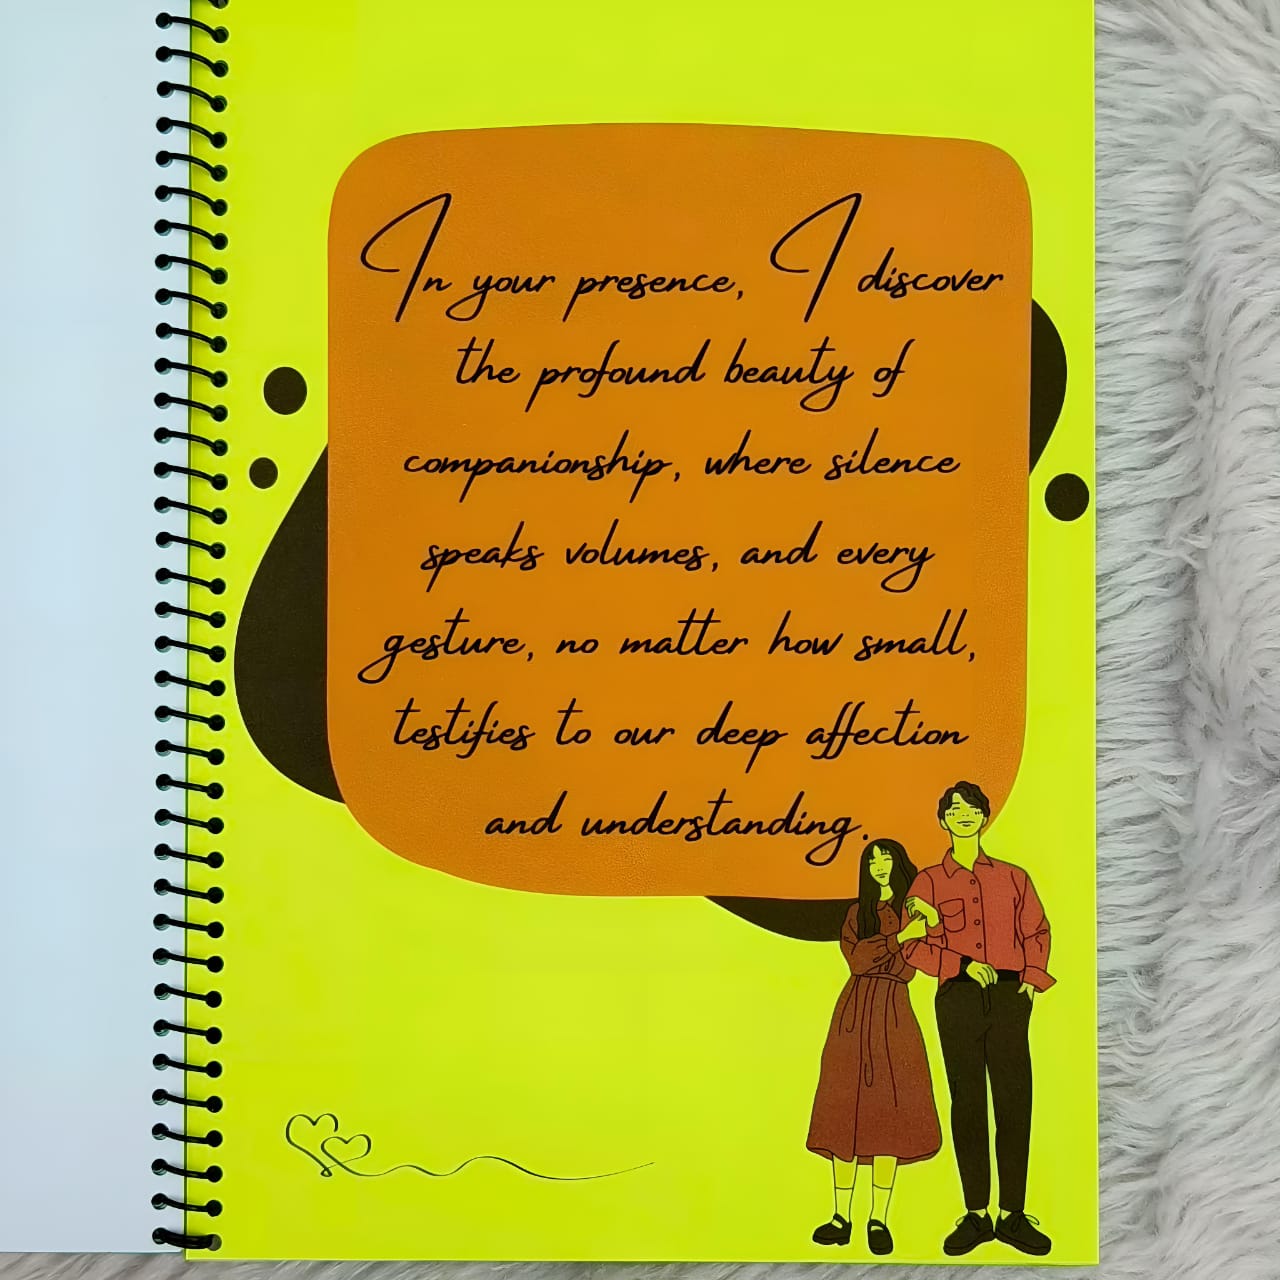 In your presence, I discover
the profound beauty of
companionship, where silence
speaks volumes, and every
gesture, no matter how small,
testifies to our deep affection
and understanding.